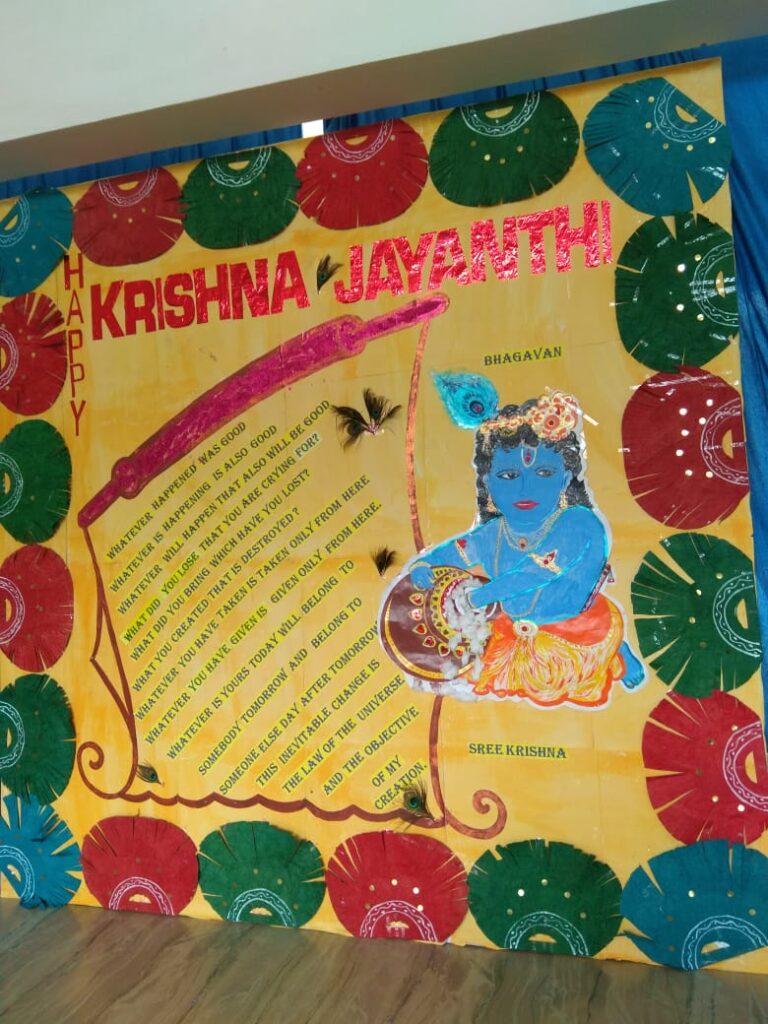 HAPPY
KRISHNA JAYANTHI
BHAGAVAN
WHATEVER HAPPENED WAS GOOD
WHATEVER IS HAPPENING IS ALSO GOOD
WHATEVER WILL HAPPEN THAT ALSO WILL BE GOOD
WHAT DID YOU LOSE THAT YOU ARE CRYING FOR?
WHAT DID YOU BRING WHICH HAVE YOU LOST?
WHAT YOU CREATED THAT IS DESTROYED?
WHATEVER YOU HAVE TAKEN IS TAKEN ONLY FROM HERE
WHATEVER YOU HAVE GIVEN IS GIVEN ONLY FROM HERE.
WHATEVER IS YOURS TODAY WILL BELONG TO
SOMEBODY TOMORROW AND BELONG TO
SOMEONE ELSE DAY AFTER TOMORROW
THIS INEVITABLE CHANGE IS
THE LAW OF THE UNIVERSE
AND THE OBJECTIVE
OF MY
CREATION.
SREE KRISHNA